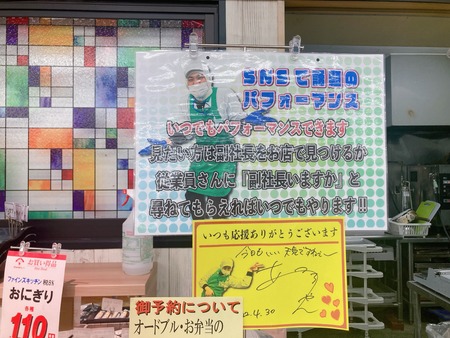 SNSで話題の
パフォーマンス
いつでもパフォーマンスできます
見たい方は副社長をお店で見つけるか
従業員さんに「副社長いますか」と
尋ねてもらえればいつでもやります!!
いつも応援ありがとうございます
4.30
お買い得品
ファインズキッチン
おにぎり
各種
110
御予約について
オードブル・お弁当の